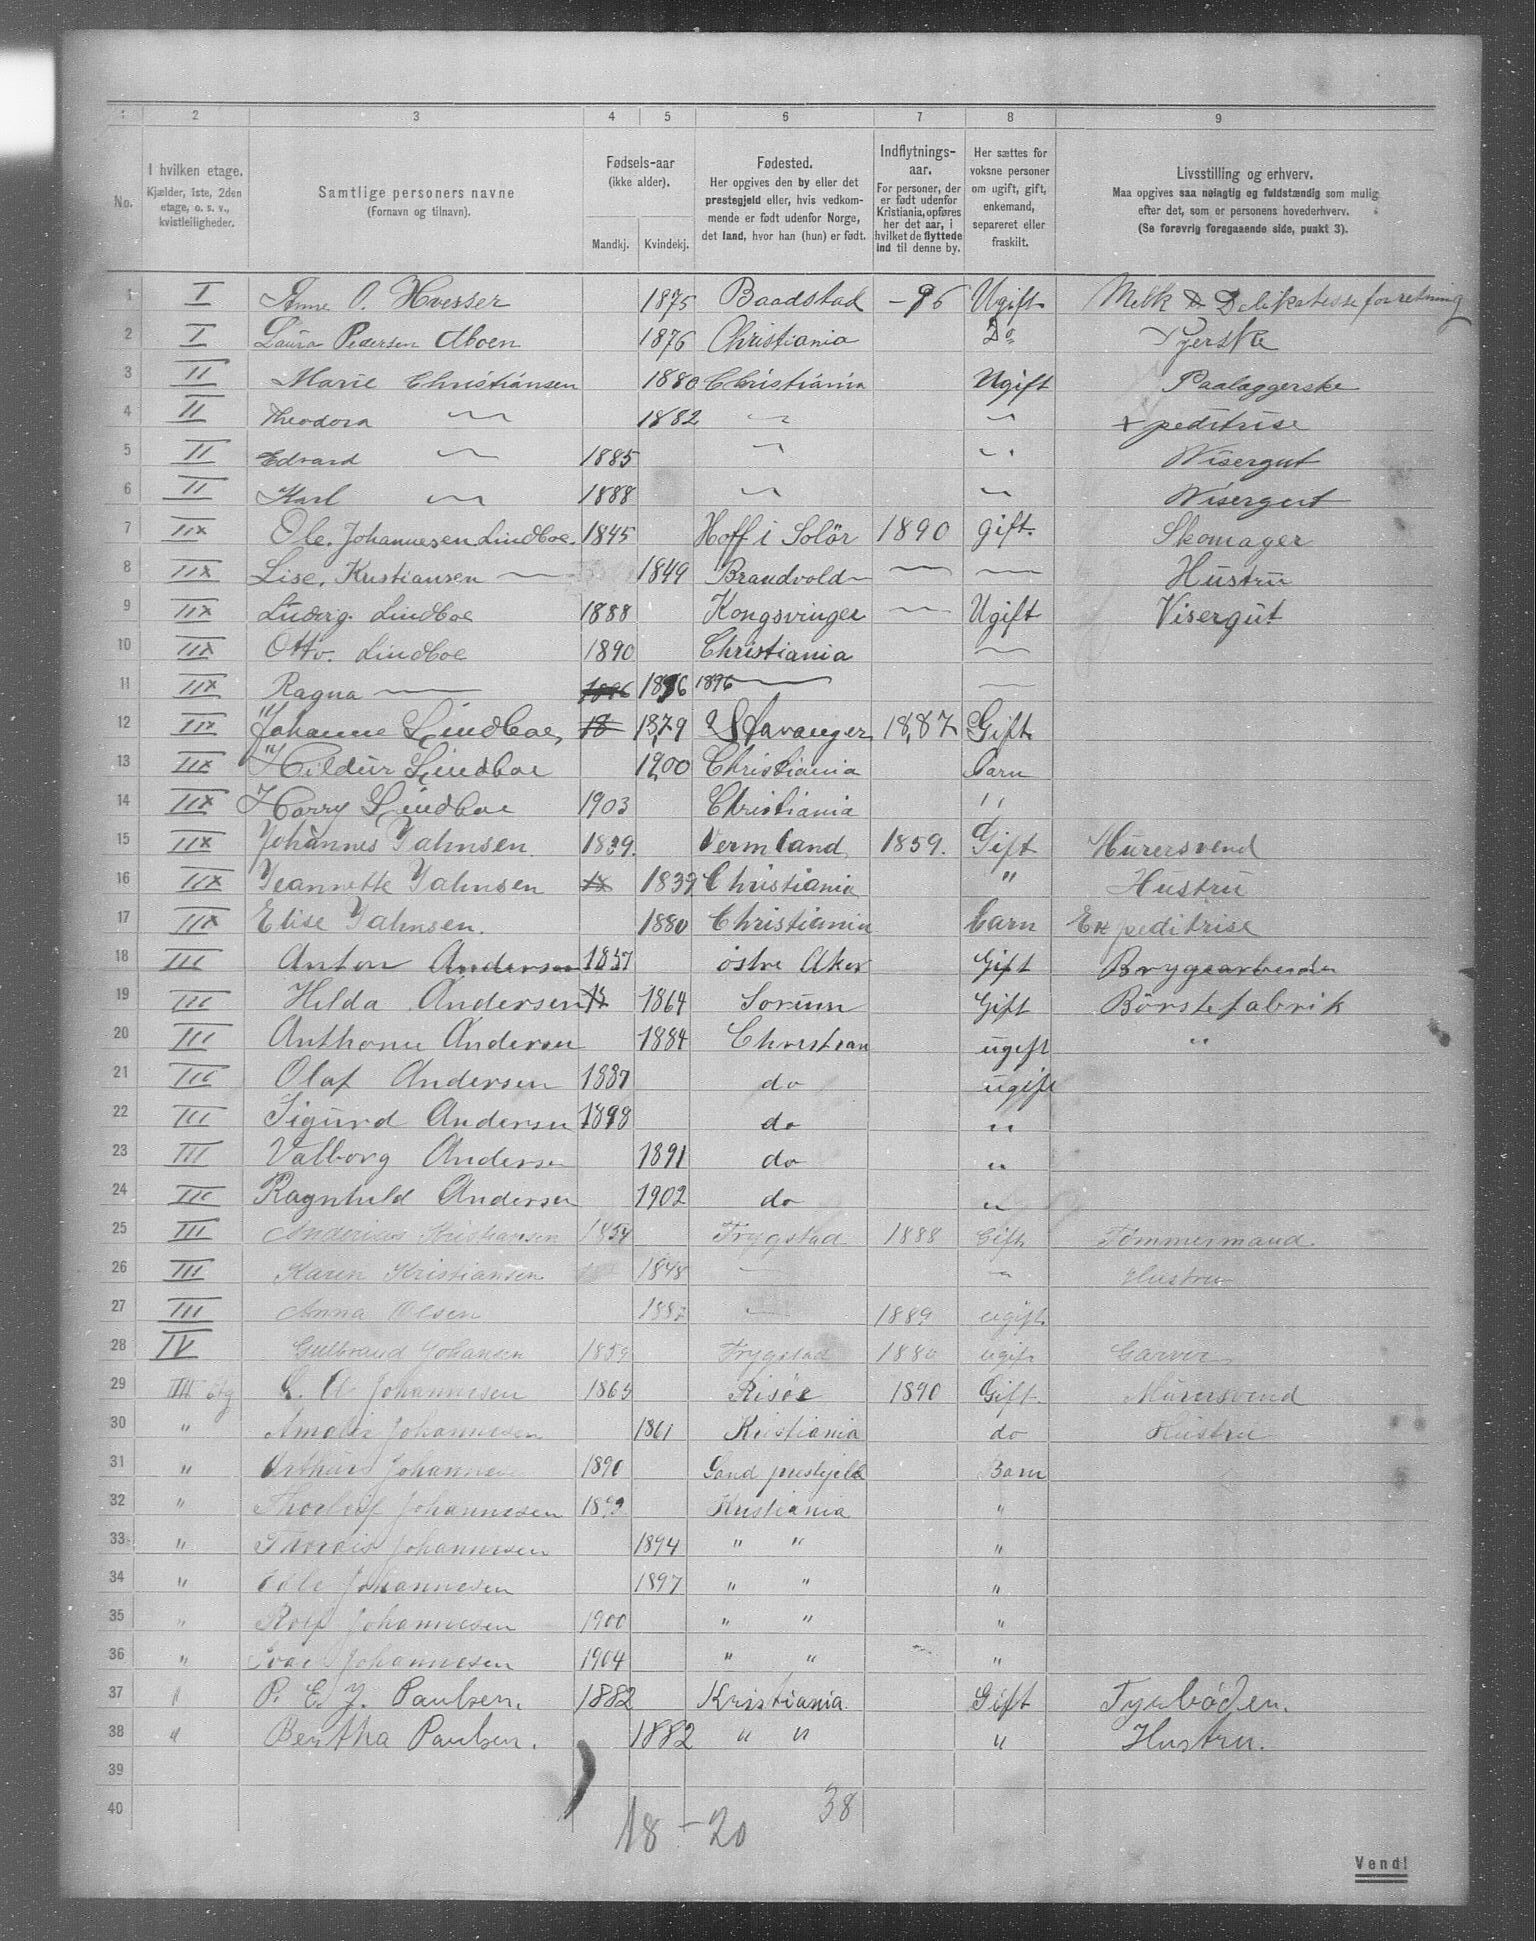 1 2 3 4 5 6 7 8 9
No. I hvilken etage. Kjælder, 1ste, 2den etage, o. s. v., kvistleiligheder. Samtlige personers navne (Fornavn og tilnavn). Fødsels-aar (ikke alder). Mandkj. Kvindekj. Fødested. Her opgives den by eller det prestegjeld eller, hvis vedkommende er født udenfor Norge, det land, hvor han (hun) er født. Indflytnings-aar. For personer, der er født udenfor Kristiania, opføres her det aar, i hvilket de flyttede ind til denne by. Her sættes for voksne personer om ugift, gift, enkemand, separeret eller fraskilt. Livsstilling og erhverv. Maa opgives saa nøiagtig og fuldstændig som mulig efter det, som er personens hovederhverv. (Se forøvrig foregaaende side, punkt 3).
1 I Anne O. Hvesser 1875 Baadstad -96 Ugift Melk & Delikatesse forretning
2 I Laura Pedersen Aboen 1876 Christiania Do Syerske
3 II Marie Christiansen 1880 Christiania Ugift Paalæggerske
4 II Theodora — 1882 — — Xpeditrise
5 II Edvard — 1885 — — Visergut
6 II Karl — 1888 — — Visergut
7 IIx Ole. Johannesen Lindboe. 1845 Hoff i Solör 1890 gift. Skomager
8 IIx Lise. Kristiansen — 1849 Brandvold — — Hustru
9 IIx Ludvig. Lindboe 1888 Kongsvinger — Ugift Visergut
10 IIx Otto. Lindboe 1890 Christiania —
11 IIx Ragna — 1896 1896 — —
12 IIx Johanne Lindboe, 18 1879 Stavanger 1887 Gift
13 IIx Hildur Lindboe 1900 Christiania barn
14 IIx Harry Lindboe 1903 Christiania "
15 IIx Johannes Jahnsen. 1839. Vermland 1859. Gift Murersvend
16 IIx Jeannette Jahnsen 18 1839 Christiania " Hustru
17 IIx Elise Jahnsen. 1880 Christiania barn Expeditrise
18 III Anton Andersen 1857 östre Aker Gift Brygearbeider
19 III Hilda Andersen 18 1864 Sorum Gift Börstefabrik
20 III Anthonie Andersen 1884 Christian ugift "
21 III Olaf Andersen 1887 do ugift
22 III Sigurd Andersen 1898 do "
23 III Valborg Andersen 1891 do "
24 III Ragnhild Andersen 1902 do "
25 III Anderias Kristiansen 1854 Trygstad 1888 Gift Tömmermand.
26 III Karen Kristiansen 1848 — — Hustru
27 III Anna Olsen 1887 — 1889 ugift
28 IV Gulbrand Johansen 1859 Trygstad 1880 ugift Garver
29 IIII Etg Johannesen 1865 Risöe 1890 Gift. Murersvend
30 " Amalie Johannesen 1861 Kristiania do Hustru
31 " Arthur Johannesen 1890 Sand prestejeld Barn
32 " Thorleif Johannesen 1892 Kristiania "
33 " Thordis Johannesen 1894 " " "
34 " Edle Johannesen 1897 " " "
35 " Rolf Johannesen 1900 " " "
36 " Ivar Johannesen 1904 " " "
37 " P. E. J. Paulsen. 1882 Kristiania Gift Fyrböden.
38 " Bertha Paulsen. 1882 " " " Hustru.
39
40 18-20 38
Vend!